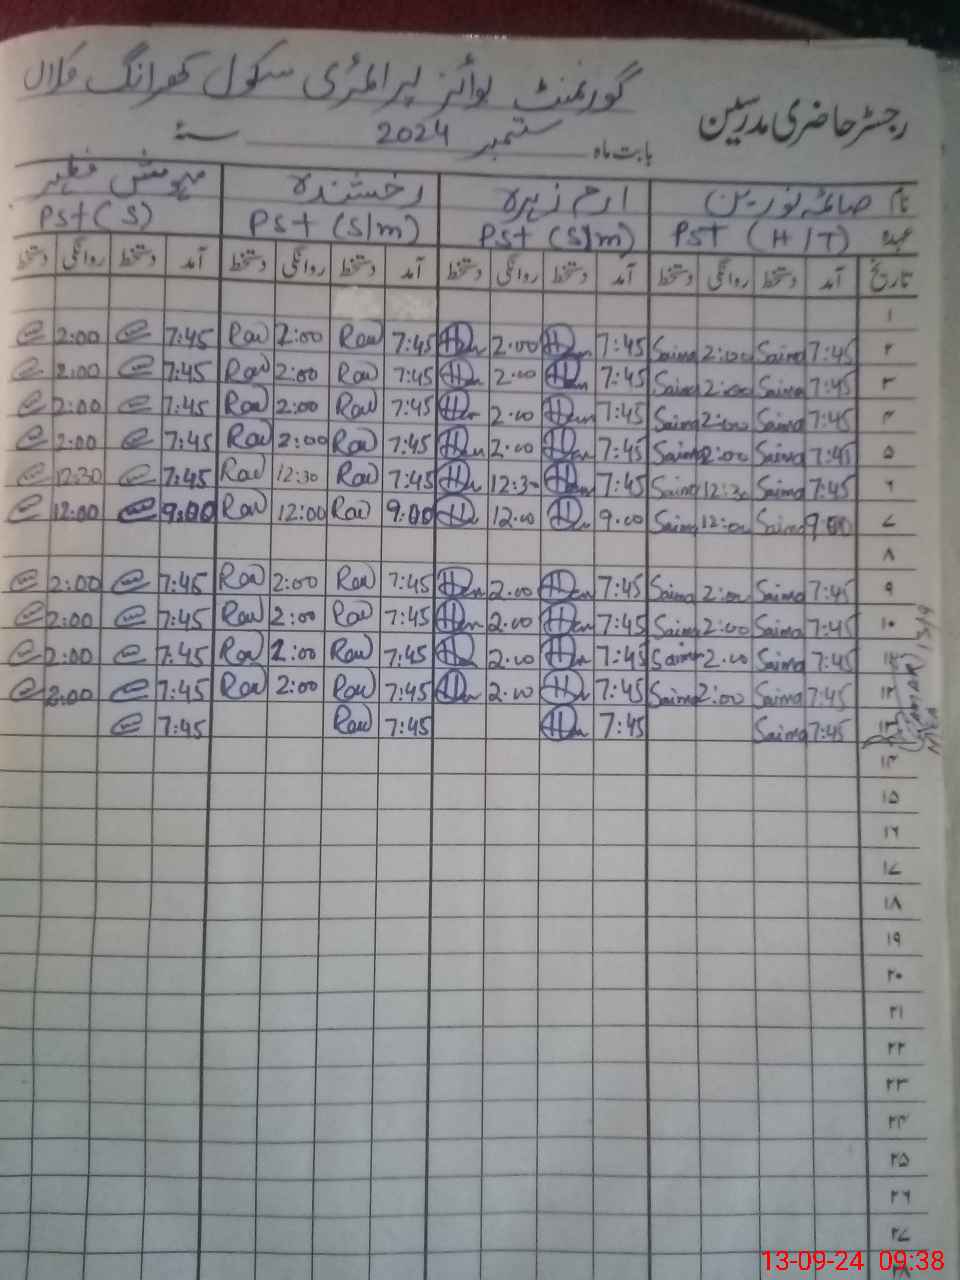 گورنمنٹ بوائز پرائمری سکول کھرانگ کلاں
رجسٹر حاضری مدرسین
بابت ماہ ستمبر 2024 سنہ
نام صائمہ نورین ارم زہرہ رخشندہ مہوش
عہدہ PST (H/T) PST (S/m) PST (S/m) PST (S)
تاریخ آمد دستخط روانگی دستخط آمد دستخط روانگی دستخط آمد دستخط روانگی دستخط آمد دستخط روانگی دستخط
۱
۲ 7:45 Saima 2:00 Saima 7:45 2:00 7:45 Raw 2:00 Raw 7:45 2:00
۳ 7:45 Saima 2:00 Saima 7:45 2:00 7:45 Raw 2:00 Raw 7:45 2:00
۴ 7:45 Saima 2:00 Saima 7:45 2:00 7:45 Raw 2:00 Raw 7:45 2:00
۵ 7:45 Saima 2:00 Saima 7:45 2:00 7:45 Raw 2:00 Raw 7:45 2:00
۶ 7:45 Saima 12:30 Saima 7:45 12:30 7:45 Raw 12:30 Raw 7:45 12:30
۷ 9:00 Saima 12:00 Saima 9.00 12.00 9:00 Raw 12:00 Raw 9:00 12:00
۸
۹ 7:45 Saima 2:00 Saima 7:45 2:00 7:45 Raw 2:00 Raw 7:45 2:00
۱۰ 7:45 Saima 2:00 Saima 7:45 2:00 7:45 Raw 2:00 Raw 7:45 2:00
۱۱ 7:45 Saima 2:00 Saima 7:45 2:00 7:45 Raw 2:00 Raw 7:45 2:00
۱۲ 7:45 Saima 2:00 Saima 7:45 2:00 7:45 Raw 2:00 Raw 7:45 2:00
۱۳ 7:45 Saima 7:45 7:45 Raw 7:45
۱۴
۱۵
۱۶
۱۷
۱۸
۱۹
۲۰
۲۱
۲۲
۲۳
۲۴
۲۵
۲۶
۲۷
۲۸
13-09-24 09:38